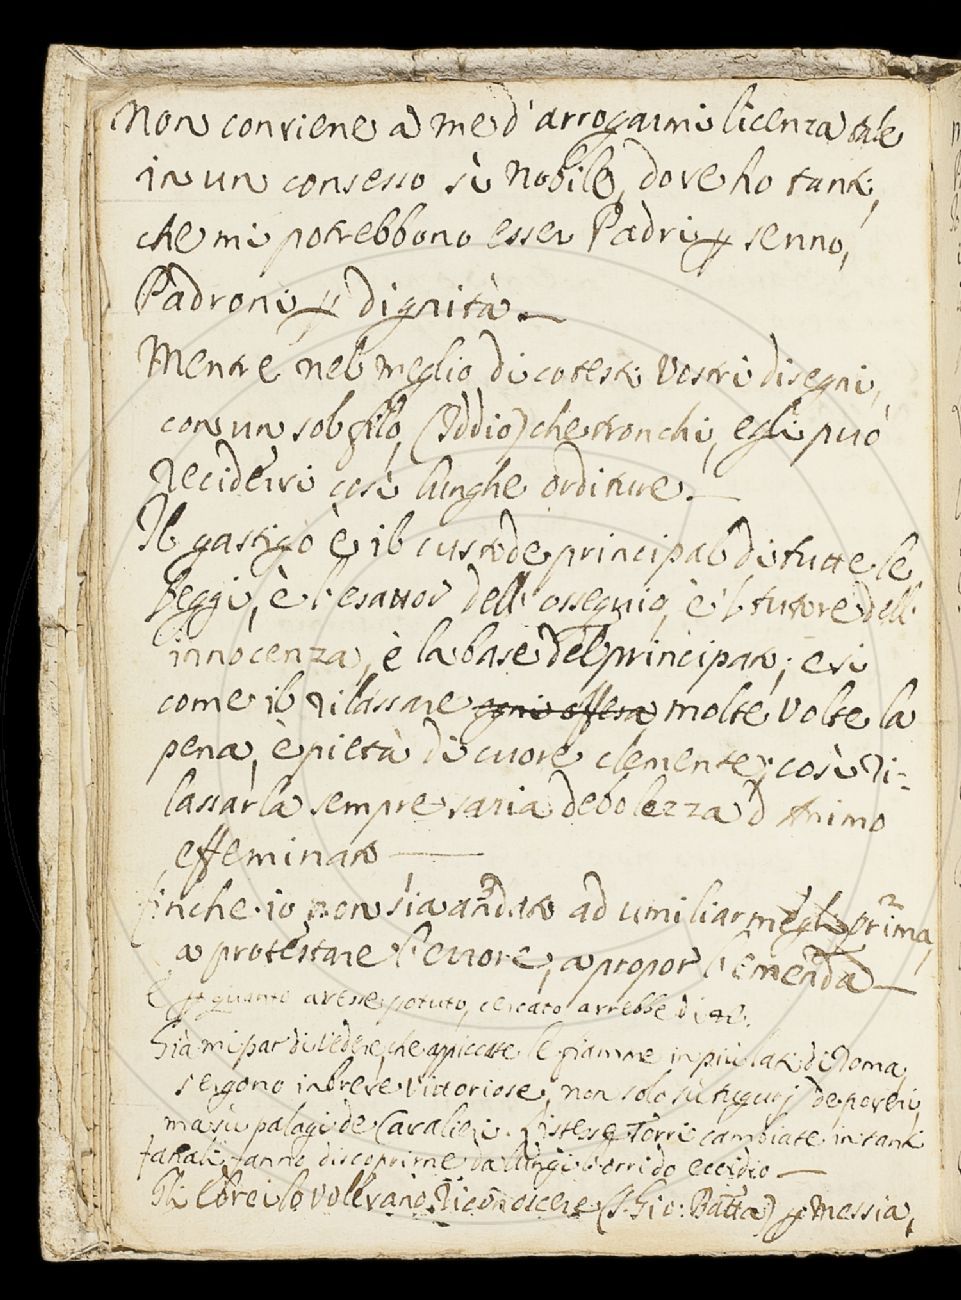 Non conviene a me d'arrogarmi licenza tale
in un consesso sì nobile, dove ho tanti,
che mi potrebbono esser Padri p senno,
Padroni p dignità.
Mentre nel meglio di cotesti vostri disegni,
con un sol filo, (Iddio) che tronchi, egli può
recidervi così lunghe orditure.
Il gastigo è il custode principal di tutte le
leggi, è l'esattor dell'ossequio, è 'l tutore dell'
innocenza, è la base del principato; e sì
come il rilassare ogni offesa molte volte la
pena, è pietà di cuore clemente; così ri-
lassarla sempre saria debolezza d'Animo
effeminato
finche io non sia andato ad umiliarmegli prima,
a protestare l'errore, a propor l'emenda
E p quanto avesse potuto, cercato avrebbe di
Già mi par di vedere, che appiccate le fiamme in più lati di Roma,
sergono in breve vittoriose, non solo sù tugurj de poveri,
ma sù palagi de Cavalieri. L'istesse Torri cambiate in tanti
fanali fanno discoprirne da lungi l'orrido eccidio
Gli Ebrei lo volevano riconoscere (S. Gio: Batta) p Messia,